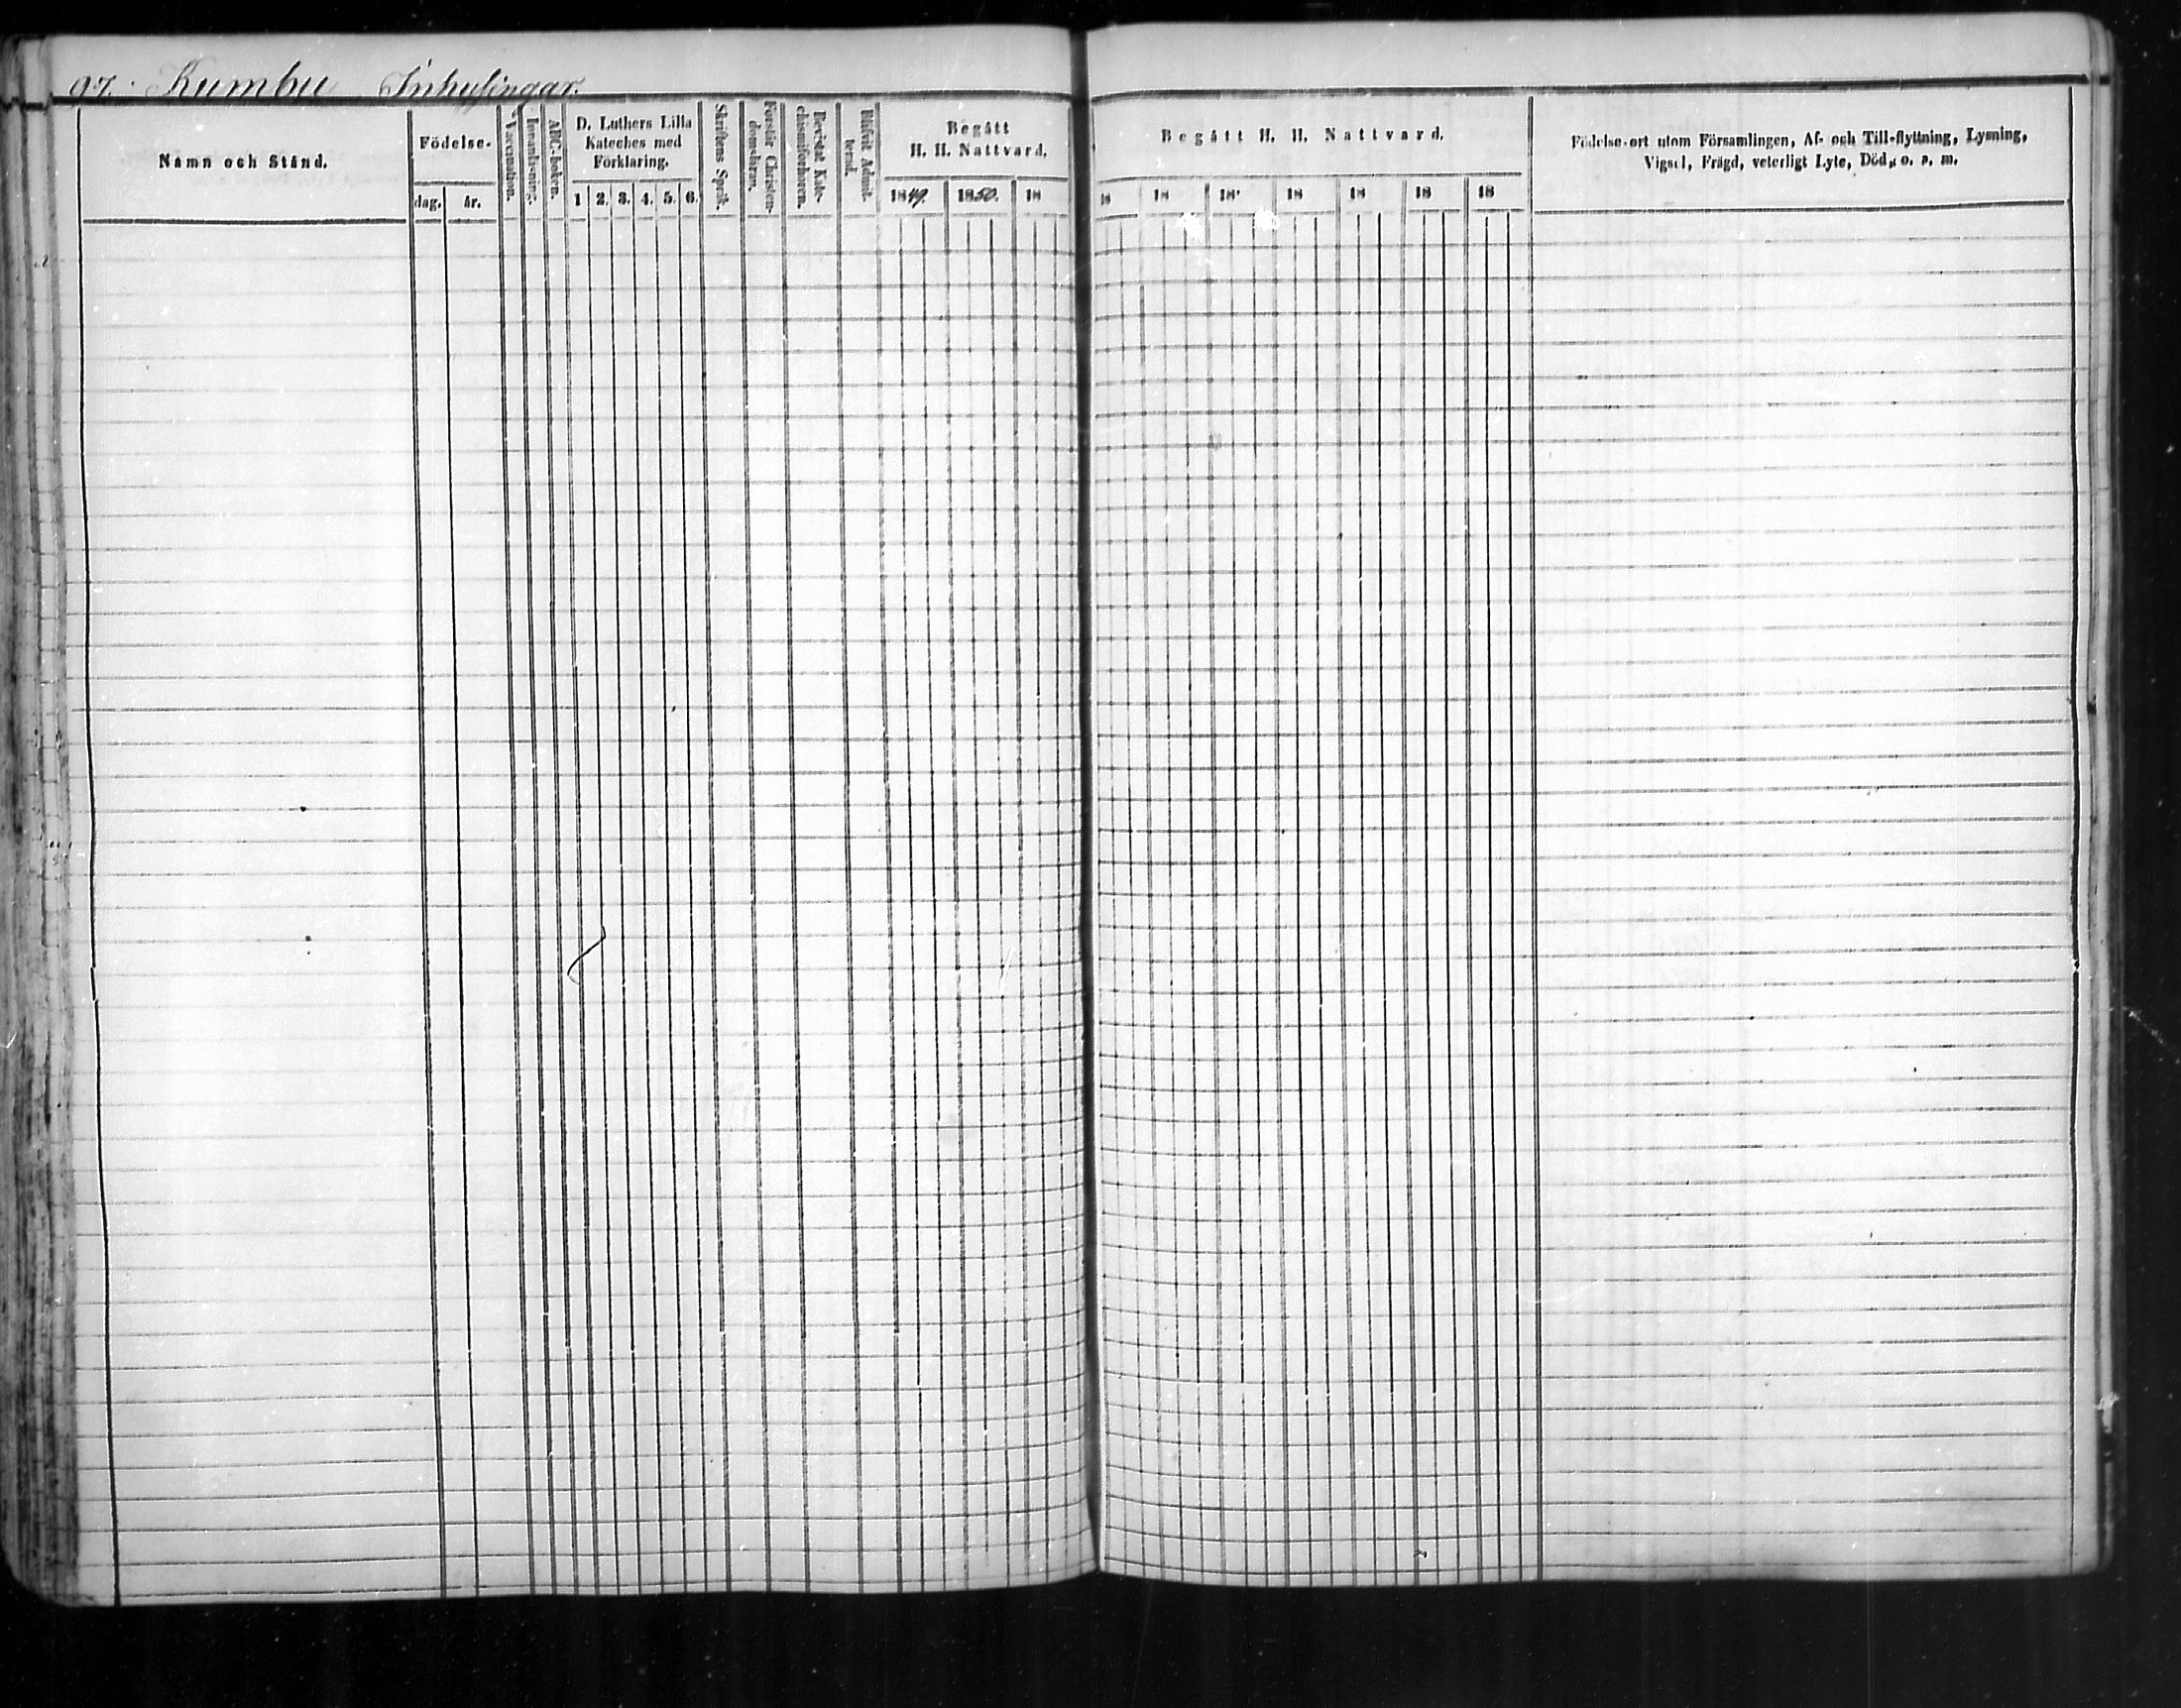 97. Kumbu Inhysingar.
Namn och Stånd.
Födelse-
dag. år.
Vaccination.
Innanläsning.
ABC-boken.
D. Luthers Lilla
Kateches med
Förklaring.
1 2. 3. 4. 5. 6.
Skriftens Språk.
Förstår Christen-
domsläran.
Bevistat Kate-
chismiförhören.
Blifvit Admit-
terad.
Begått
H. H. Nattvard.
1849. 1850. 18
Begått H. H. Nattvard.
18 18 18 18 18 18 18
Födelse-ort utom Församlingen, Af- och Till-flyttning, Lysning,
Vigsel, Frägd, veterligt Lyte, Död, o. s. m.